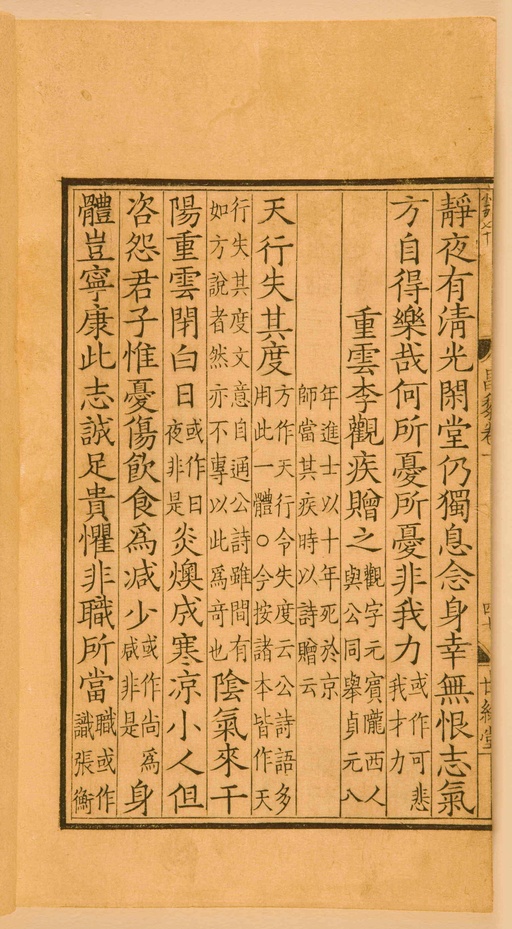 靜夜有清光閑堂仍獨息念身幸無恨志氣
方自得樂哉何所憂所憂非我力
或作可悲
我才力
重雲李觀疾贈之
觀字元賓隴西人
與公同舉貞元八
年進士以十年死於京
師當其疾時以詩贈云
天行失其度
方作天行令失度云公詩語多
用此一體○今按諸本皆作天
行失其度文意自通公詩雖間有
如方說者然亦不專以此爲奇也
陰氣來干
陽重雲閇白日
或作日
夜非是
炎燠成寒凉小人但
咨怨君子惟憂傷飲食爲减少
或作尚爲
咸非是
身
體豈寧康此志誠足貴懼非職所當
職或作
識張衡